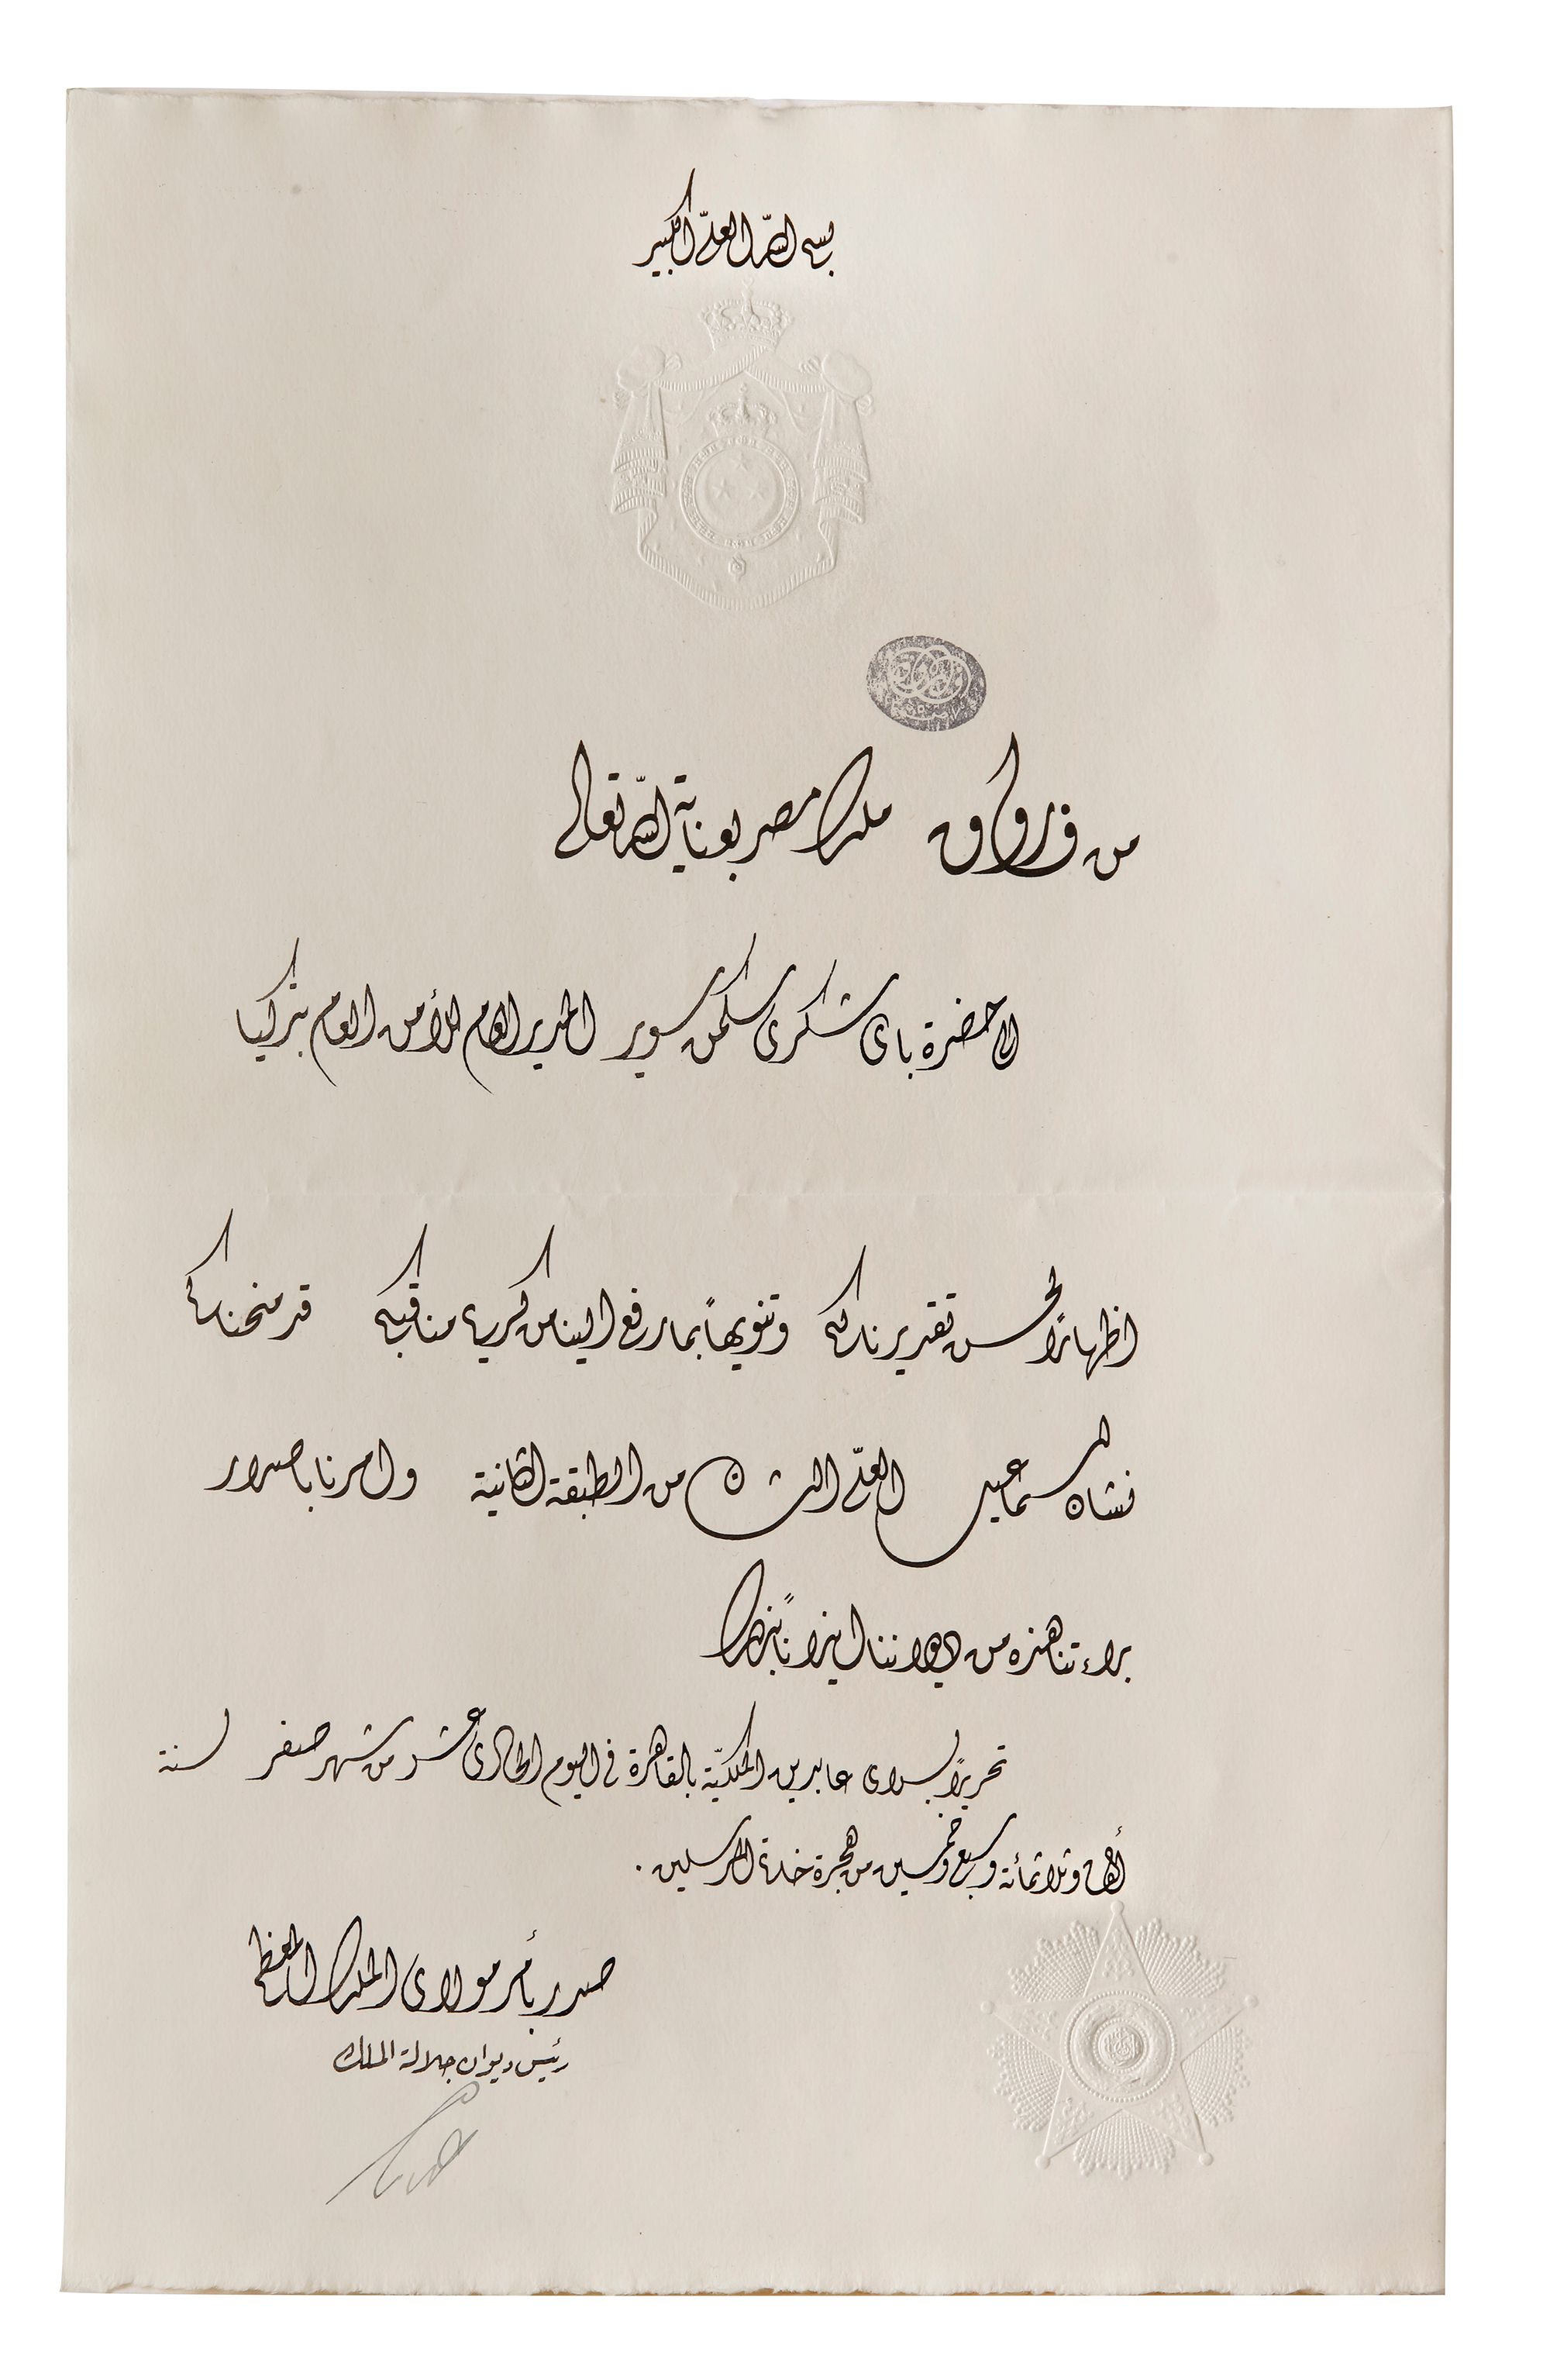 بسم الله العلىّ الكبير
من فاروق ملك مصر بعناية الله تعالى
الى حضرة باى شكرى سوكمن سوير المدير العام للأمن العام بتركيا
اظهارًا لحسن تقديرنا لكم وتنويهاً بما رفع الينا من كريم مناقبكم قد منحناكم
نشان اسماعيل العلىّ الشان من الطبقة الثانية وامرنا باصدار
براءتنا هذه من ديواننا ايذاناً بذلك
تحريرًا بسراى عابدين الملكيّة بالقاهرة فى اليوم الحادى عشر من شهر صفر لسنة
ألف وثلاثمائة وسبع وخمسين من هجرة خاتم المرسلين .
صدر بأمر مولاى الملك المعظم
رئيس ديوان جلالة الملك